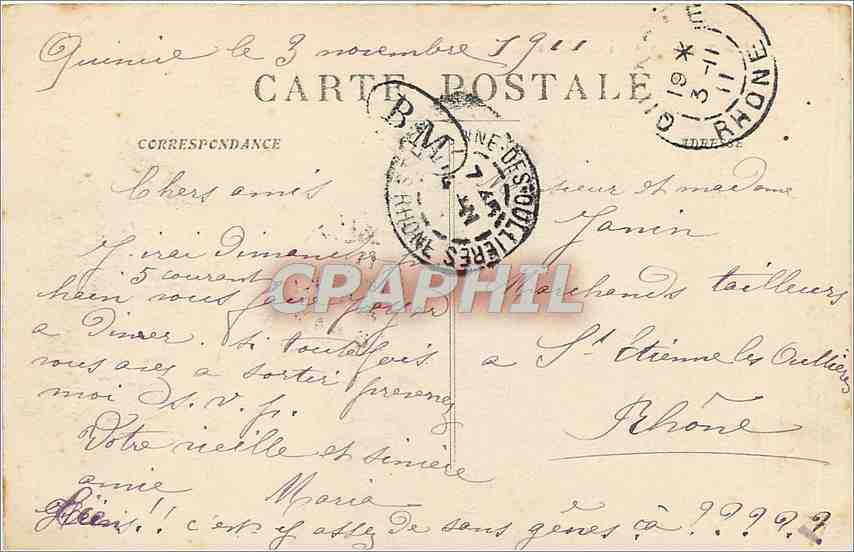 Quincié le 3 novembre 1911
CARTE POSTALE
CORRESPONDANCE
ADRESSE
19 *
3 -11
11
RHONE
BM
NNE-DES-OULLIERES RHONE
7 45
Chers amis
J'irai Dimanche
5 courant
hain vous faire payer
a diner. Si toute fois
vous avez a sortir prevenez
moi s. v. p.
Votre vieille et sincère
amie Maria
Hiens!! c'est y assez de sans gênes ca ?????
sieur et madame
Janin
Marchands tailleurs
a St Etienne les Oullières
Rhône
CPAPHIL